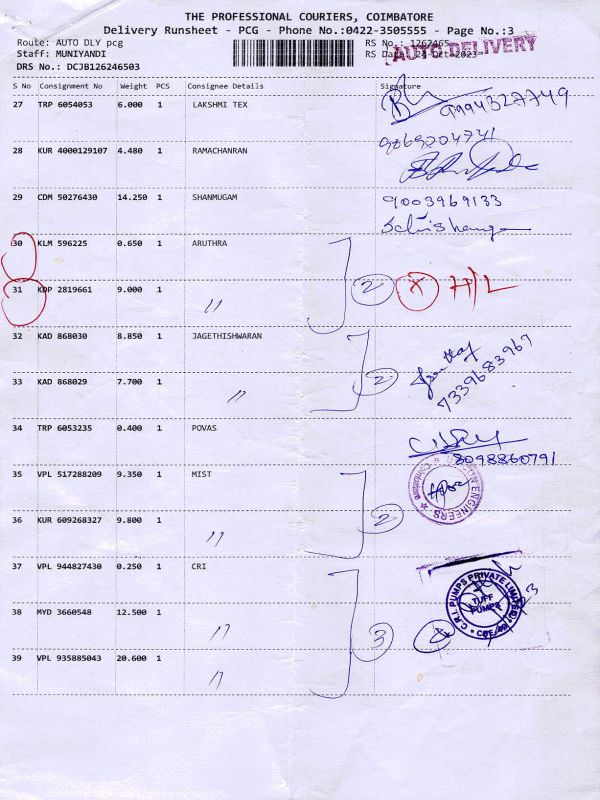 THE PROFESSIONAL COURIERS, COIMBATORE
Delivery Runsheet - PCG - Phone No.:0422-3505555 - Page No.:3
Route: AUTO DLY pcg RS No.: 1262465
AUTO DELIVERY
Staff: MUNIYANDI RS Date: 24-Oct-2023
DRS No.: DCJB126246503
S No Consignment No Weight PCS Consignee Details Signature
27 TRP 6054053 6.000 1 LAKSHMI TEX 9994327749
28 KUR 4000129107 4.480 1 RAMACHANRAN 9869204741
29 CDM 50276430 14.250 1 SHANMUGAM 9003969133
30 KLM 596225 0.650 1 ARUTHRA
31 KDP 2819661 9.000 1 〃 2 X H/L
32 KAD 868030 8.850 1 JAGETHISHWARAN
33 KAD 868029 7.700 1 〃 2 7339683967
34 TRP 6053235 0.400 1 POVAS
8098860791
35 VPL 517288209 9.350 1 MIST
36 KUR 609268327 9.800 1 〃 2
ENGINEERS
Coimbatore
37 VPL 944827430 0.250 1 CRI
38 MYD 3660548 12.500 1 〃 3
C.R.I. PUMPS PRIVATE LIMITED
TUFF
PUMPS
39 VPL 935885043 20.600 1 〃